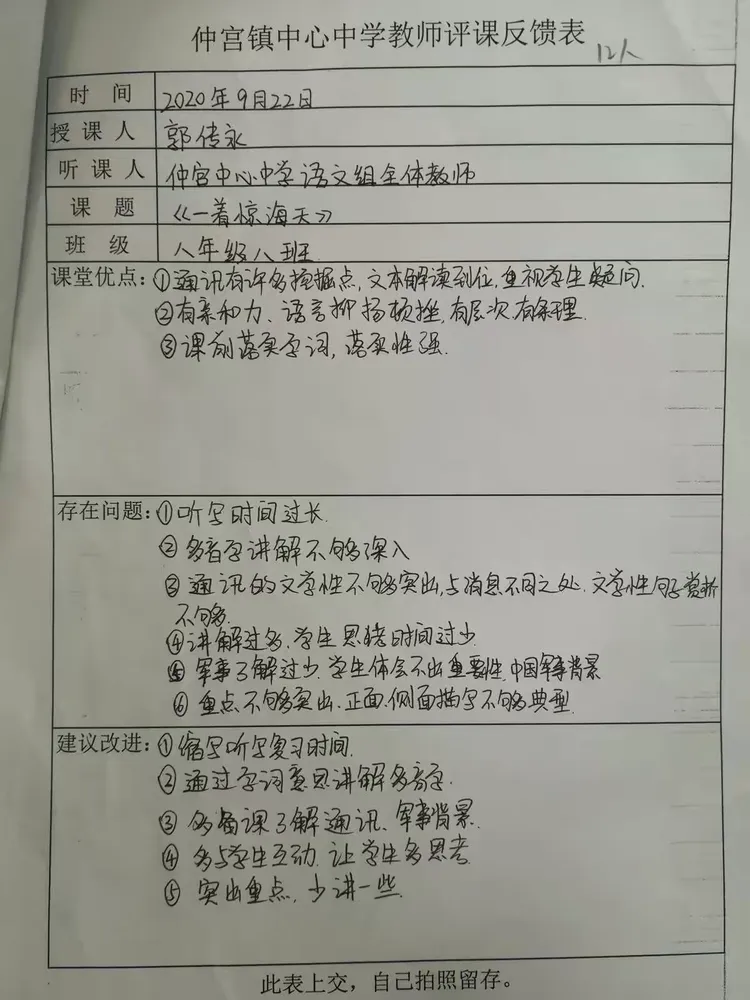 仲宫镇中心中学教师评课反馈表
12人
时 间 2020年9月22日
授课人 郭传永
听课人 仲宫中心中学语文组全体教师
课 题 《一着惊海天》
班 级 八年级八班
课堂优点:①通讯有许多挖掘点,文本解读到位,重视学生疑问.
②有亲和力、语言抑扬顿挫,有层次.有条理.
③课前落实字词,落实性强.
存在问题:①听写时间过长.
②多音字讲解不够深入
③通讯的文学性不够突出,与消息不同之处.文学性句子赏析
不够.
④讲解过多.学生思考时间过少.
⑤军事了解过少.学生体会不出重要性,中国军事背景
⑥重点不够突出.正面.侧面描写不够典型.
建议改进:①缩写听写复习时间.
②通过字词意思讲解多音字.
③多备课了解通讯、军事背景.
④多与学生互动.让学生多思考
⑤突出重点,少讲一些.
此表上交,自己拍照留存。